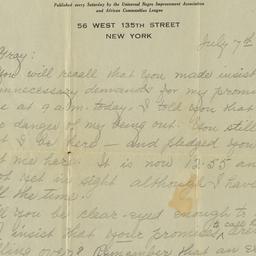 Published every Saturday by the Universal Negro Improvement Association
and African Communities League
56 WEST 135TH STREET
NEW YORK
July 7th
Gray:
you will recall that you made insist
unnecessary demands for my promi
e at 9 a.m. today. I told you that
o danger of my being out. You still
t I be here – and pledged you
t me here. It is now 12:55 an
ot yet in sight although I have
ll the time.
ll you be clear-eyed enough to
insist that your promises
over? Remember that an e